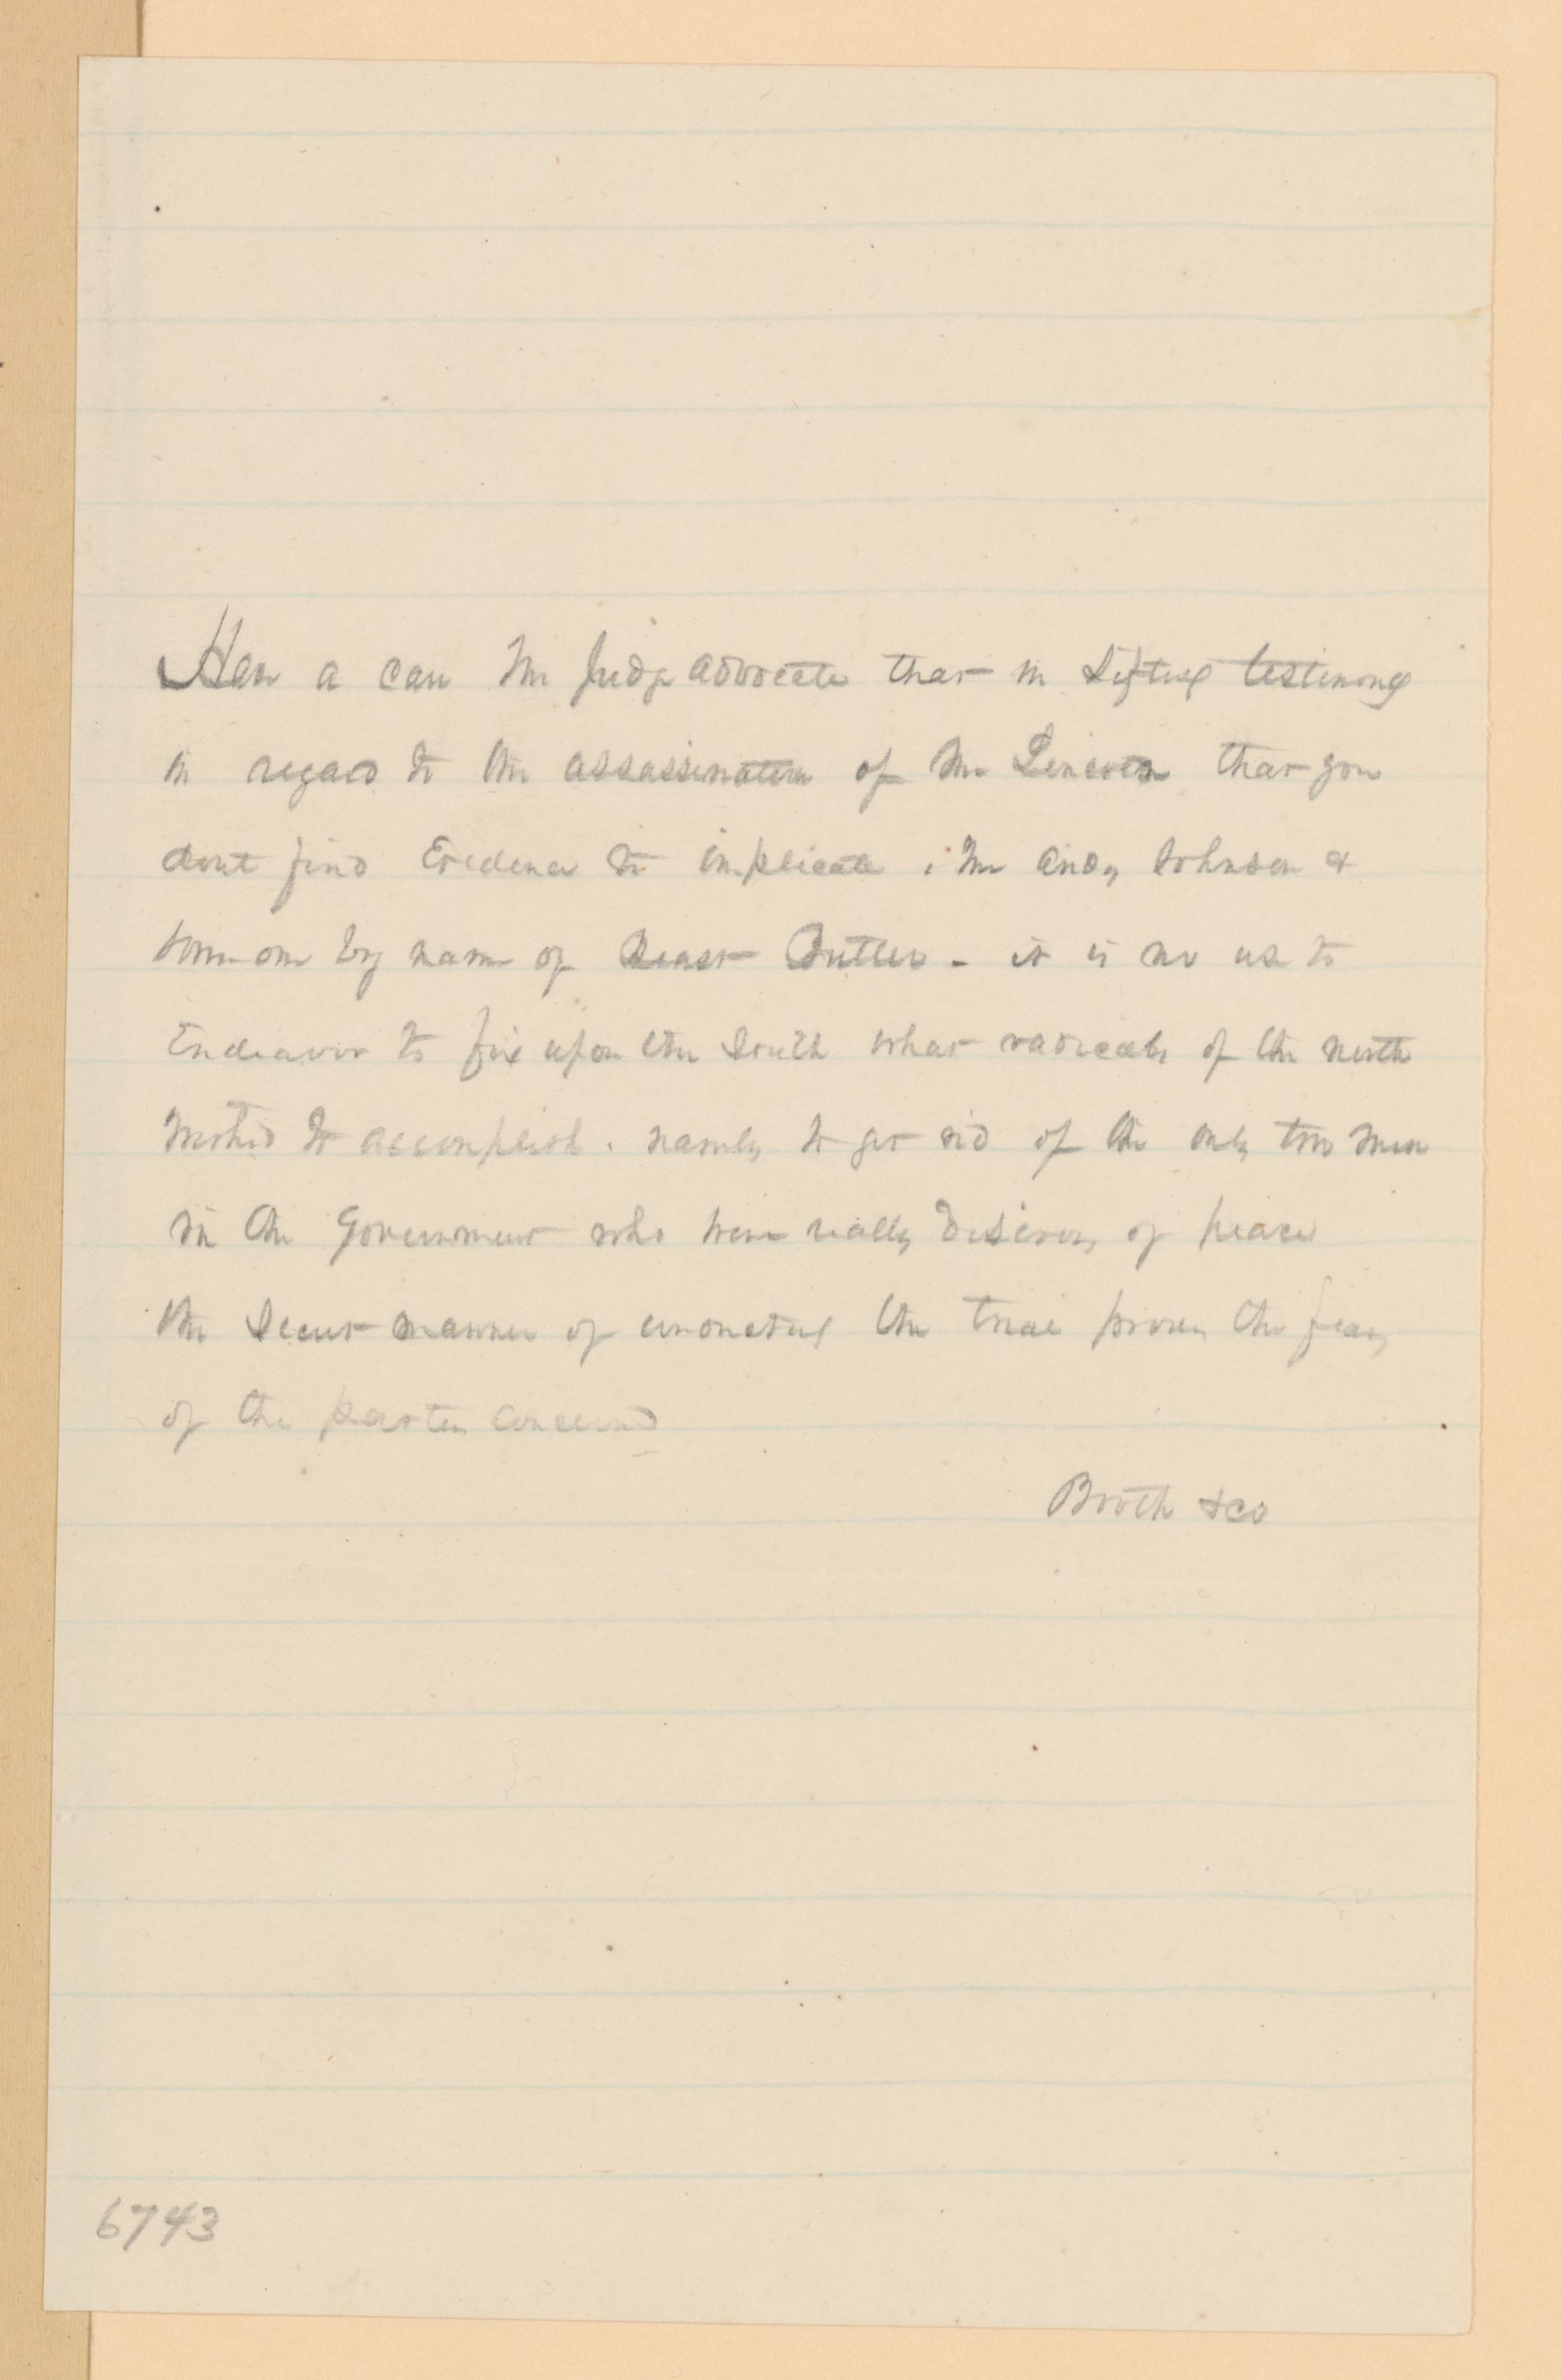 Have a care Mr Judge advocate that in sifting testimony
in regard to the assassination of Mr Lincoln that you
dont find Evidence to implicate Mr Andy Johnson &
some one by name of Beast Butler - it is no use to
Endeavor to fix upon the South what radicals of the north
wished to accomplish. namely to get rid of the only two men
in the Government who were really desirous of peace
the secret manner of conducting the trial proves the fears
of the parties concerned
Booth & co
6743